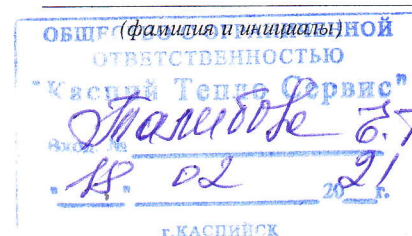 (фамилия и инициалы)
ОБЩЕСТВО С ОГРАНИЧЕННОЙ
ОТВЕТСТВЕННОСТЬЮ
"Каспий Тепло Сервис"
Талибова
Вход. №
"18" 02 2021 г.
г.КАСПИЙСК